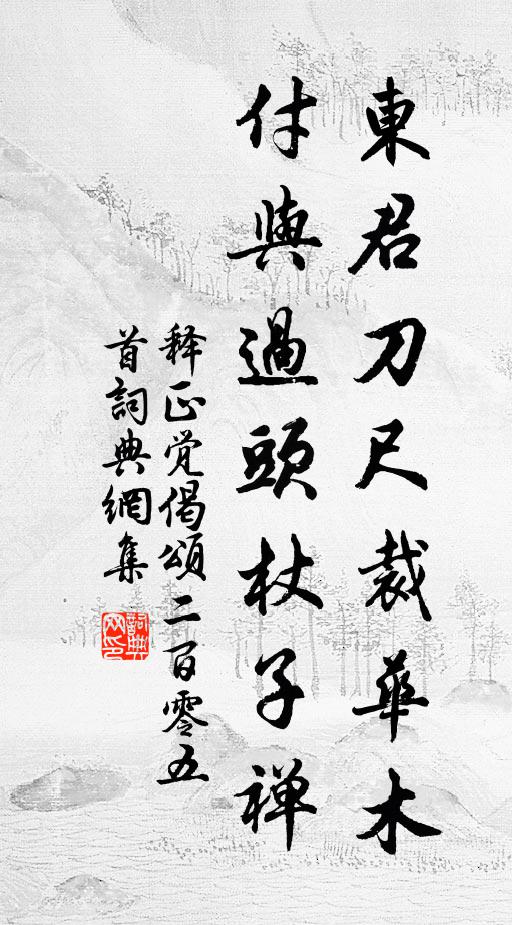 東君刀尺裁華木
付與過頭杖子禅
释正觉偈頌二百零五
首詞典網集
詞典
网印